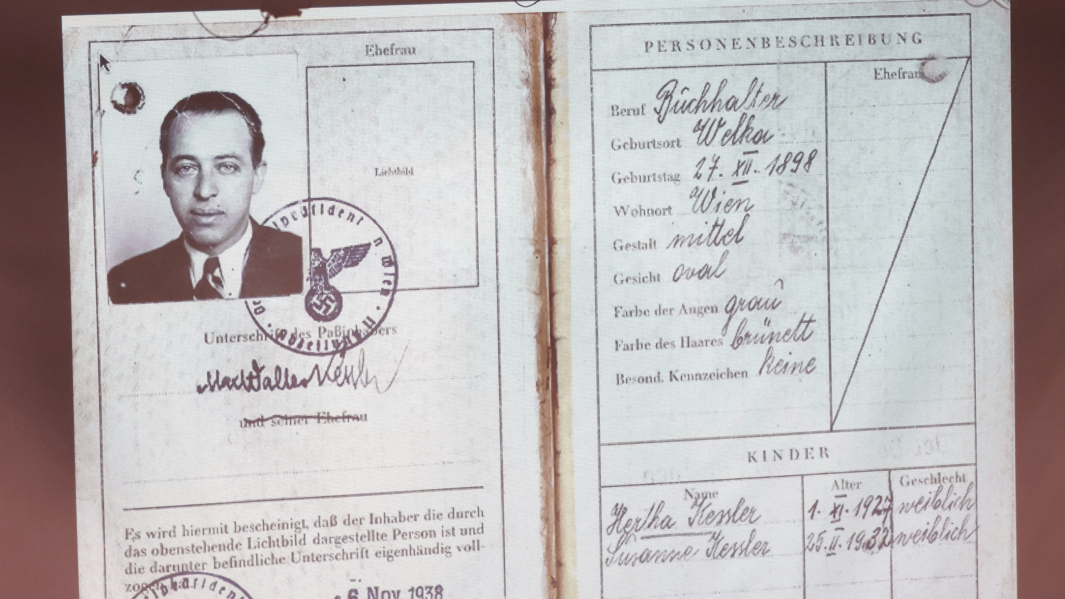 Ehefrau
Lichtbild
Unterschrift des Paßinhabers
Kessler
und seiner Ehefrau
Es wird hiermit bescheinigt, daß der Inhaber die durch
das obenstehende Lichtbild dargestellte Person ist und
die darunter befindliche Unterschrift eigenhändig voll-
6 Nov 1938
PERSONENBESCHREIBUNG
Ehefrau
Beruf Buchhalter
Geburtsort Welka
Geburtstag 27. XII. 1898
Wohnort Wien
Gestalt mittel
Gesicht oval
Farbe der Augen grau
Farbe des Haares brünett
Besond. Kennzeichen keine
KINDER
Name Alter Geschlecht
Hertha Kessler 1. XI. 1927 weiblich
Susanne Kessler 25. II. 1932 weiblich